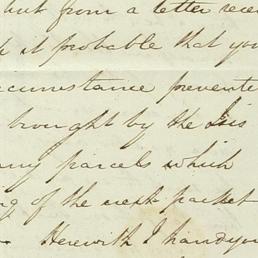 but from a letter rece
it probable that you
circumstance prevente
brought by the Isis
any parcels which
of the next packet
Herewith I hand you